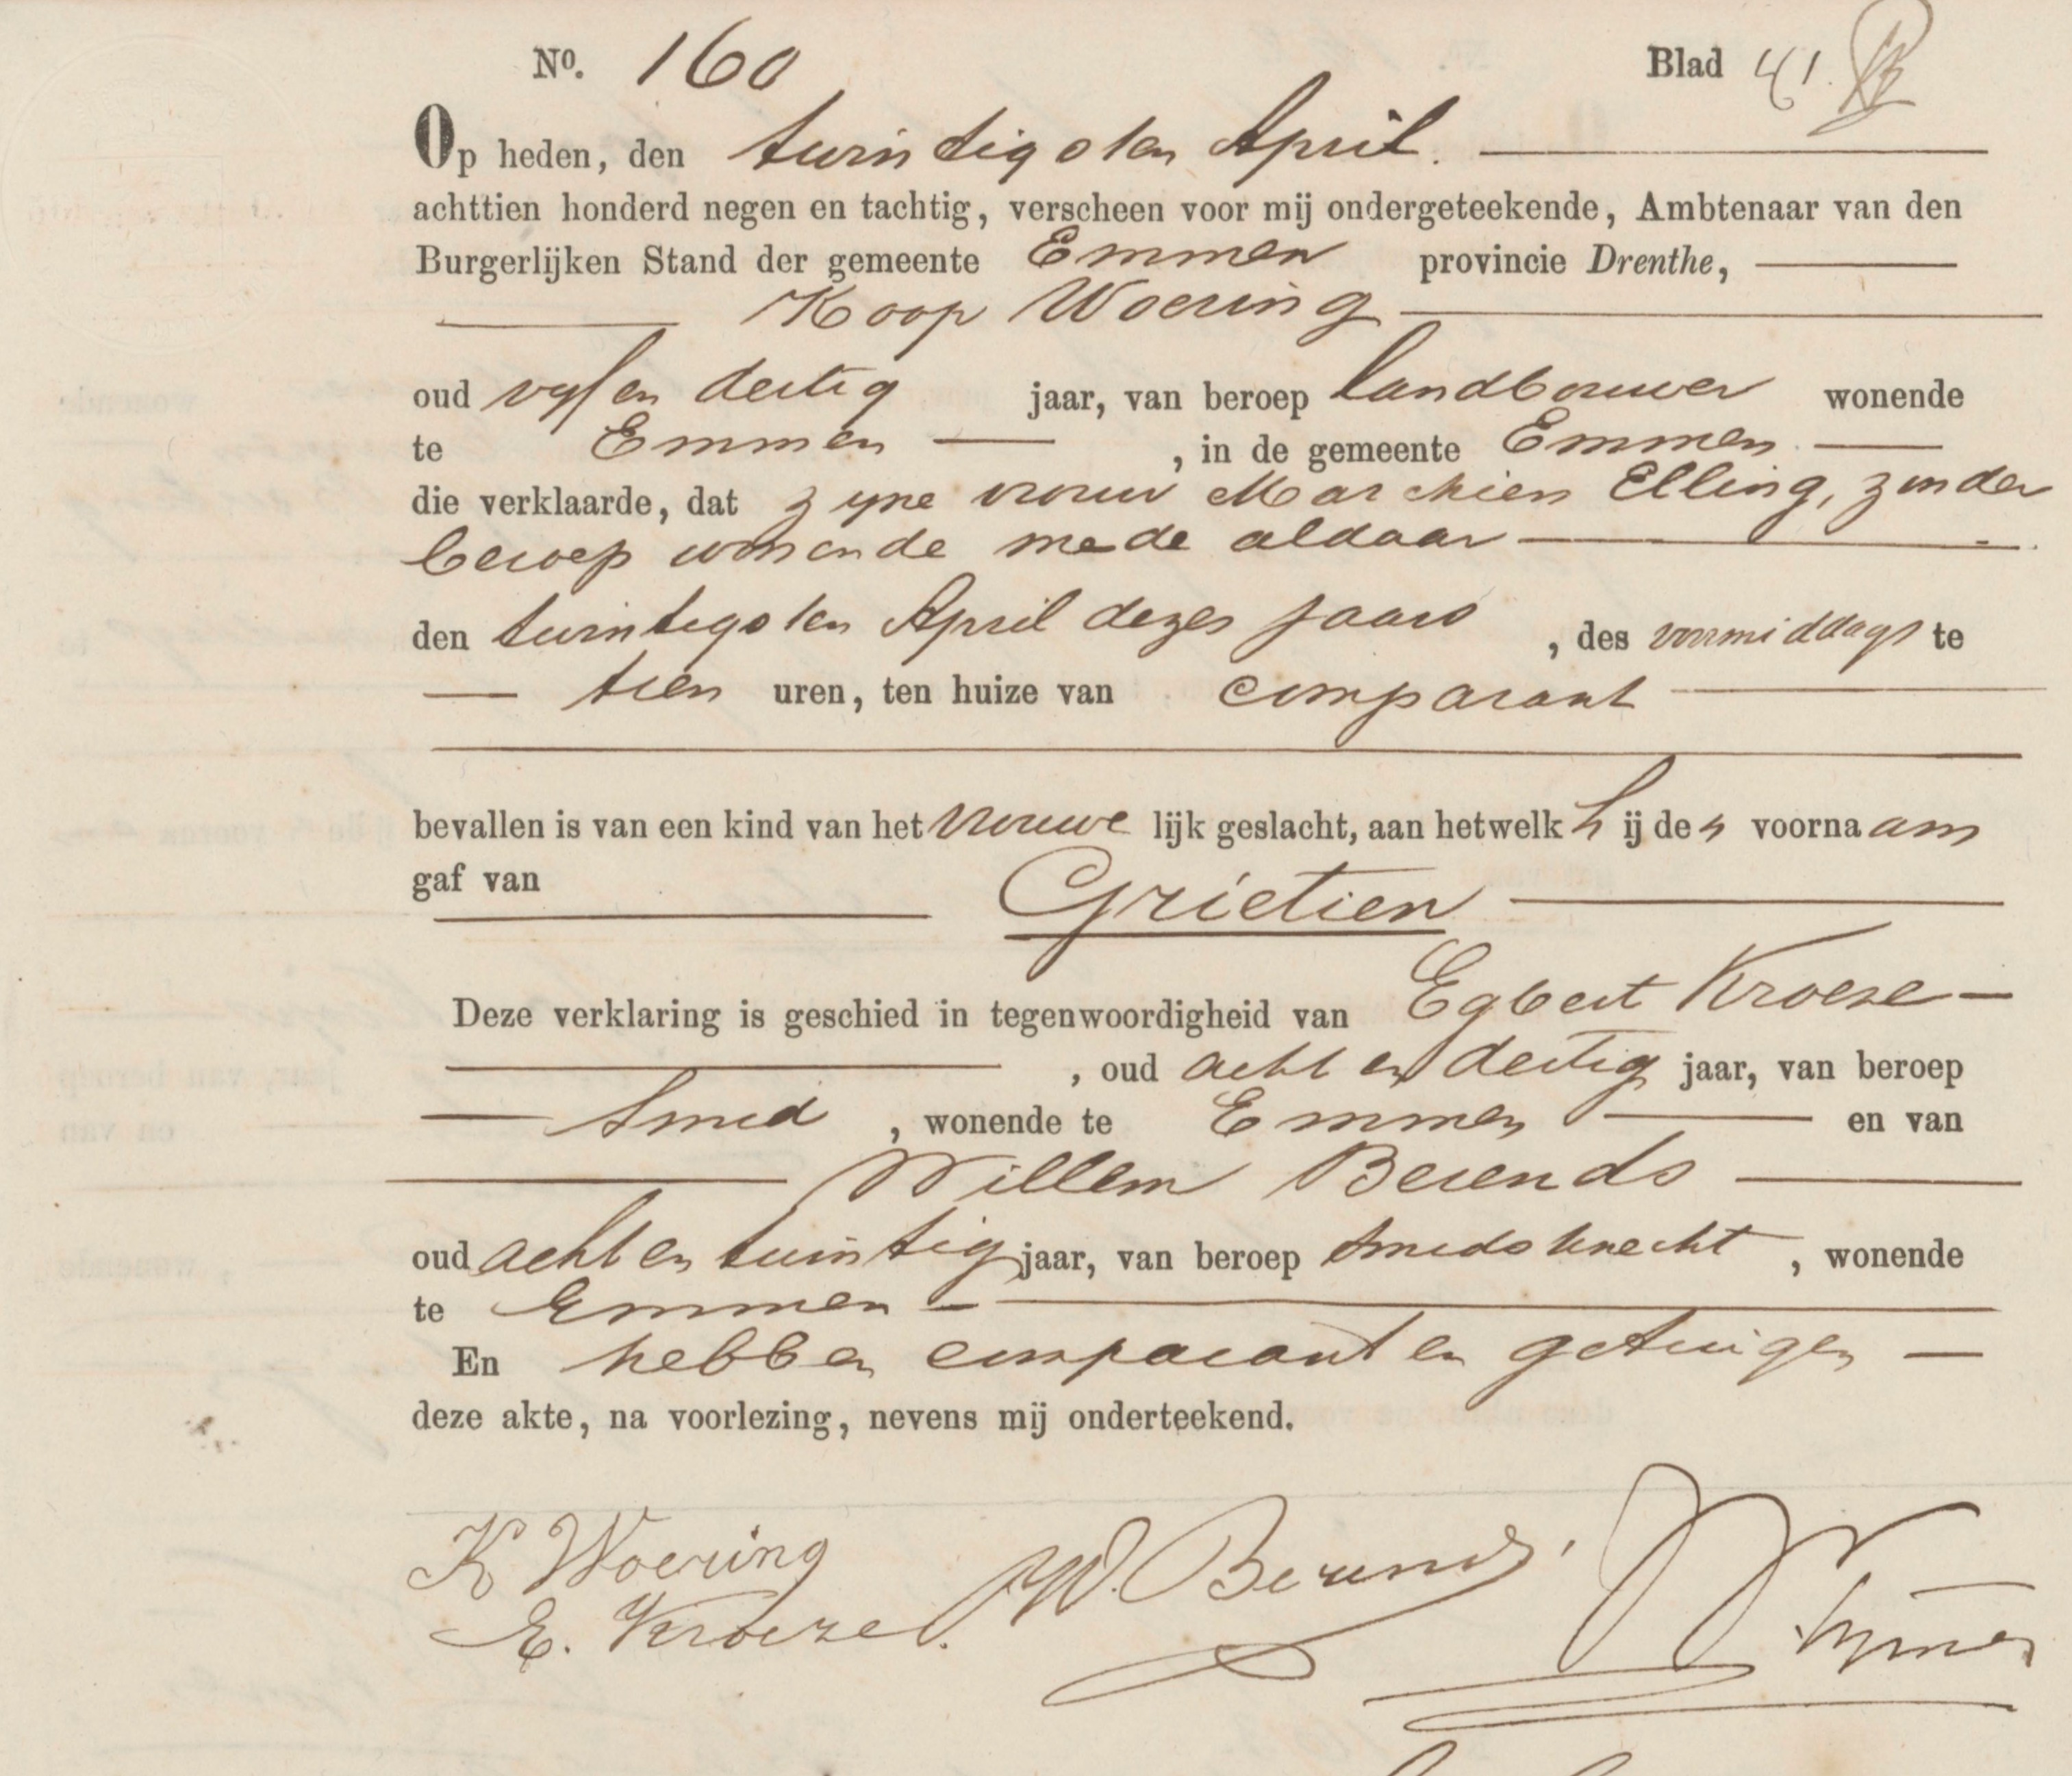 No. 160 Blad 41.
Op heden, den twintigsten April.
achttien honderd negen en tachtig, verscheen voor mij ondergeteekende, Ambtenaar van den
Burgerlijken Stand der gemeente Emmen provincie Drenthe,
Koop Woering
oud vyf en dertig jaar, van beroep landbouwer wonende
te Emmen, in de gemeente Emmen
die verklaarde, dat zyne vrouw Marchien Elling, zonder
beroep wonende mede aldaar
den twintigsten April dezes jaars, des voormiddags te
tien uren, ten huize van comparant
bevallen is van een kind van het vrouwelijk geslacht, aan hetwelk hij den voornaam
gaf van Grietien
Deze verklaring is geschied in tegenwoordigheid van Egbert Kroeze
, oud acht en dertig jaar, van beroep
Smid, wonende te Emmen en van
Willem Berends
oud acht en twintig jaar, van beroep smidsknecht, wonende
te Emmen
En hebben comparant en getuigen
deze akte, na voorlezing, nevens mij onderteekend.
K Woering W. Berends
E. Kroeze.